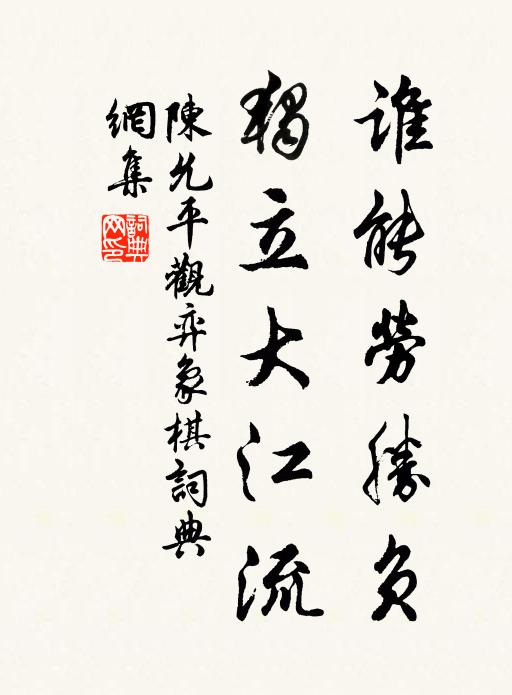 誰能勞勝負
獨立大江流
陳允平觀弈象棋詞典
網集
詞典
网印